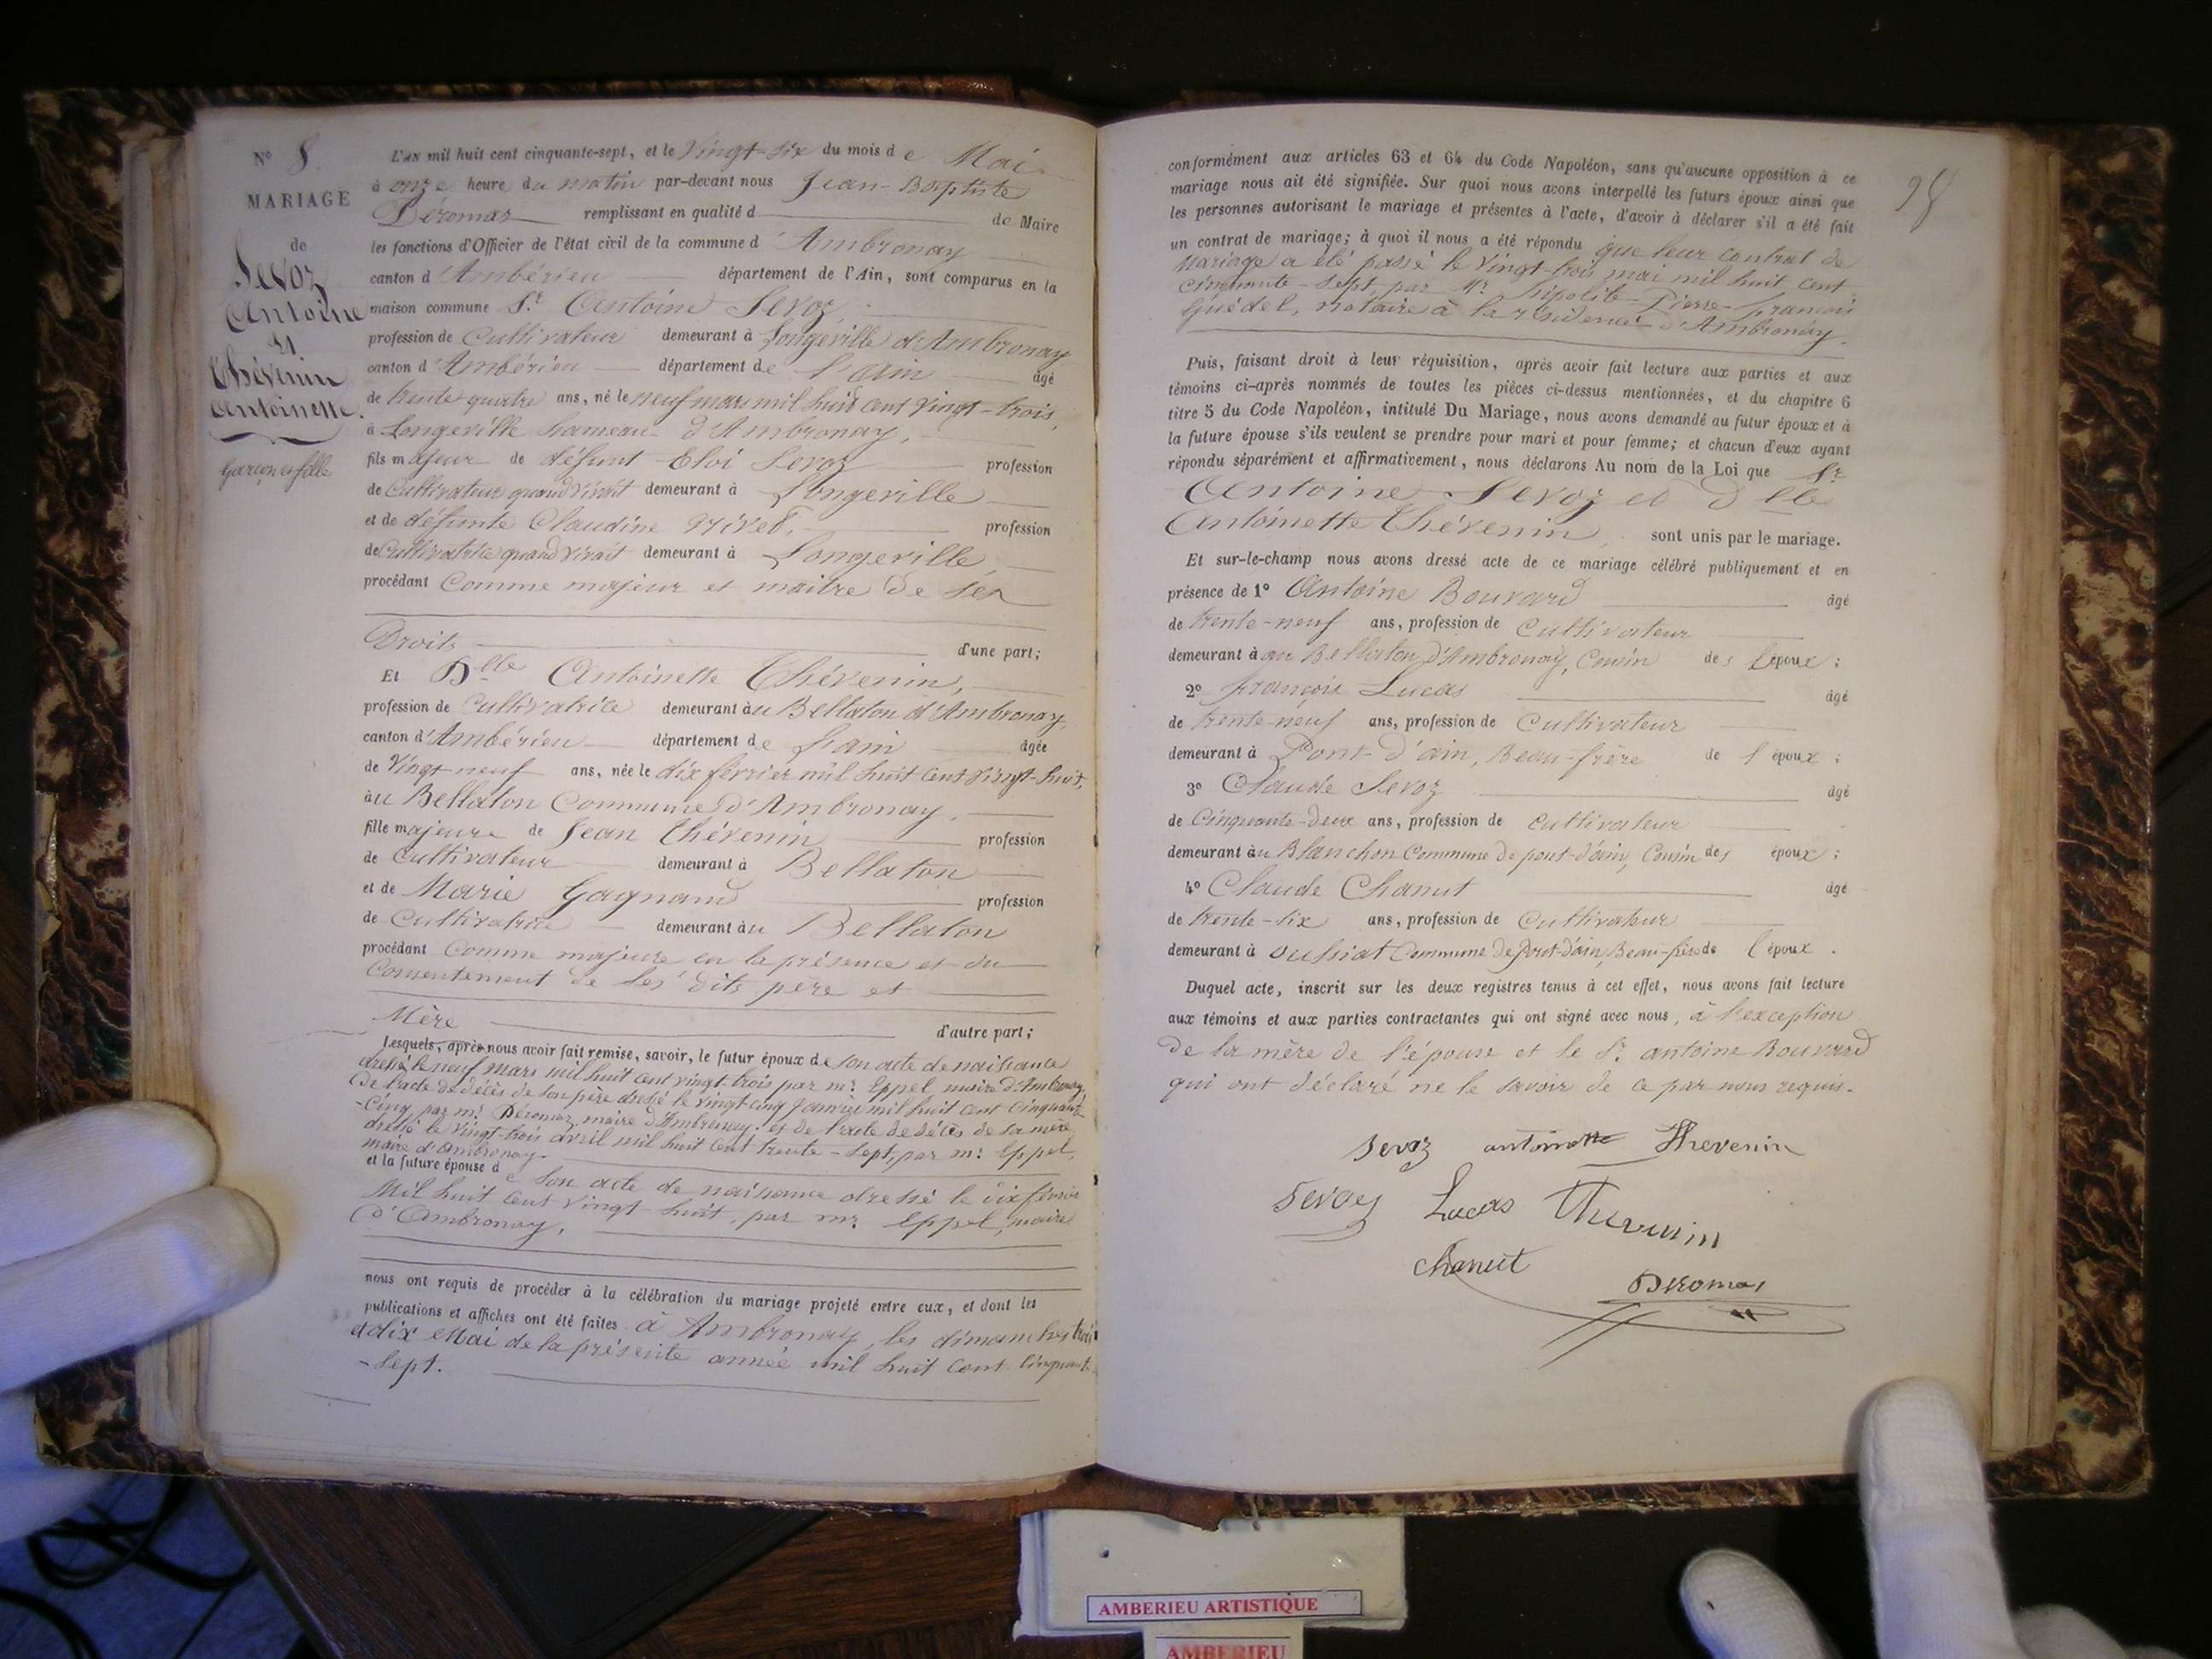 N° 8.
MARIAGE
de
Sevoz
Antoine
et
Thévenin
Antoinette.
garçon et fille
L'AN mil huit cent cinquante-sept, et le Vingt-Six du mois de Mai
à onze heure du matin par-devant nous Jean-Baptiste
Déromas remplissant en qualité d de Maire
les fonctions d'Officier de l'état civil de la commune d'Ambronay
canton d'Ambérieu département de l'Ain, sont comparus en la
maison commune Sr. Antoine Sevoz,
profession de Cultivateur demeurant à Longeville d'Ambronay
canton d'Ambérieu département de l'ain âgé
de trente quatre ans, né le neuf mars mil huit cent Vingt-trois,
à Longeville hameau d'Ambronay,
fils majeur de défunt Eloi Sevoz profession
de Cultivateur quand vivait demeurant à Longeville
et de défunte Claudine profession
de Cultivatrice quand vivait demeurant à Longeville,
procédant Comme majeur et maitre de ses
Droits d'une part;
Et Dlle Antoinette Thévenin,
profession de Cultivatrice demeurant au Bellaton d'Ambronay,
canton d'Ambérieu département de l'ain âgée
de Vingt-neuf ans, née le dix février mil huit cent vingt-huit,
àu Bellaton Commune d'Ambronay,
fille majeure de Jean Thévenin profession
de Cultivateur demeurant à Bellaton
et de Marie Gagnand profession
de Cultivatrice demeurant àu Bellaton
procédant Comme majeure en la présence et du
Consentement de Ses dits père et
Mère d'autre part;
Lesquels, après nous avoir fait remise, savoir, le futur époux de son acte de naissance
dressé le neuf mars mil huit cent vingt-trois par mr. Eppel maire d'Ambronay,
De l'acte de décès de son père dressé le vingt-cinq janvier mil huit cent cinquante
-Cinq par mr. Déromas, maire d'Ambronay; et de l'acte de décès de sa mère
dressé le vingt-trois avril mil huit cent trente-sept, par mr. Eppel,
maire d'Ambronay.
et la future épouse de son acte de naissance dressé le dix février
Mil huit cent vingt-huit, par mr. Eppel, maire
d'Ambronay,
nous ont requis de procéder à la célébration du mariage projeté entre eux, et dont les
publications et affiches ont été faites à Ambronay, les dimanches trois
et dix Mai de la présente année mil huit cent cinquante
-sept.
98
conformément aux articles 63 et 64 du Code Napoléon, sans qu'aucune opposition à ce
mariage nous ait été signifiée. Sur quoi nous avons interpellé les futurs époux ainsi que
les personnes autorisant le mariage et présentes à l'acte, d'avoir à déclarer s'il a été fait
un contrat de mariage; à quoi il nous a été répondu que leur contrat de
Mariage a été passé le Vingt-trois mai mil huit cent
cinquante-sept par Mr. Hipolite-Pierre-François
Guédel, notaire à la résidence d'Ambronay.
Puis, faisant droit à leur réquisition, après avoir fait lecture aux parties et aux
témoins ci-après nommés de toutes les pièces ci-dessus mentionnées, et du chapitre 6
titre 5 du Code Napoléon, intitulé Du Mariage, nous avons demandé au futur époux et à
la future épouse s'ils veulent se prendre pour mari et pour femme; et chacun d'eux ayant
répondu séparément et affirmativement, nous déclarons Au nom de la Loi que Sr.
Antoine Sevoz et Dlle
Antoinette Thévenin, sont unis par le mariage.
Et sur-le-champ nous avons dressé acte de ce mariage célébré publiquement et en
présence de 1° Antoine Bouvard âgé
de trente-neuf ans, profession de Cultivateur
demeurant à au Bellaton d'Ambronay, Cousin des l'époux;
2° François Lucas âgé
de trente-neuf ans, profession de Cultivateur
demeurant à Pont-d'ain, Beau-frère de l'époux;
3° Claude Sevoz âgé
de Cinquante-deux ans, profession de Cultivateur
demeurant àu Blanchon Commune de pont-d'ain, Cousin des époux;
4° Claude Chanut âgé
de trente-six ans, profession de Cultivateur
demeurant à Oussiat Commune de Pont-d'ain, Beau-frère de l'époux.
Duquel acte, inscrit sur les deux registres tenus à cet effet, nous avons fait lecture
aux témoins et aux parties contractantes qui ont signé avec nous, à l'exception
De la mère de l'épouse et le Sr. antoine Bouvard
qui ont déclaré ne le savoir de ce par nous requis.
Sevoz antoinette Thevenin
Sevoz Lucas Thevenin
Chanut
Deromas
AMBERIEU ARTISTIQUE
AMBERIEU